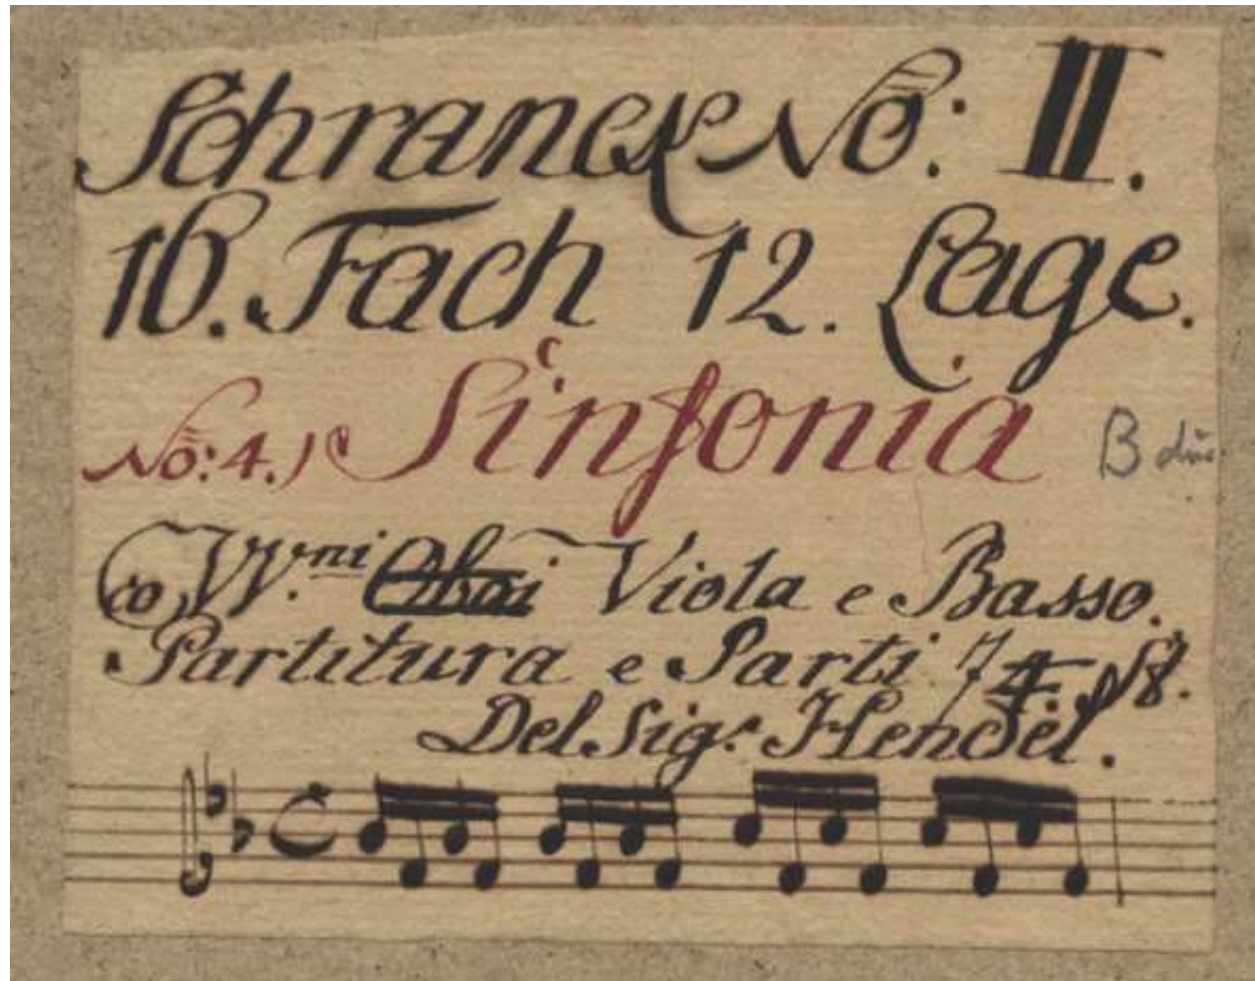 Schranck No: II.
16. Fach 12. Lage.
No: 4.) Sinfonia B dur.
co VV.ni Oboi Viola e Basso.
Partitura e Parti 7 4. 18.
Del Sig.r Hendel.